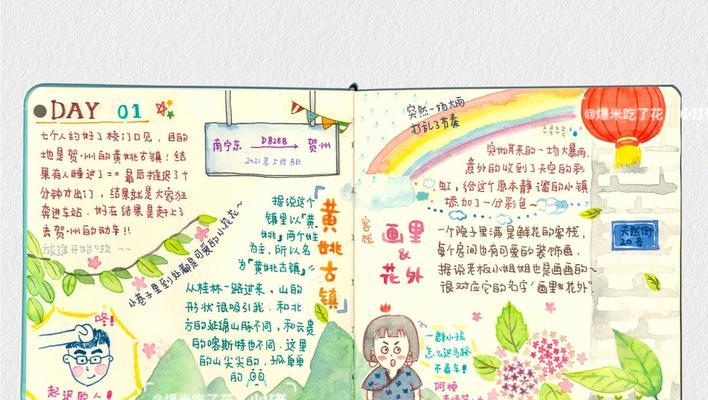 DAY 01
七个人约好了校门口见，目的
地是贺州的黄姚古镇！结
果有人睡过了== 最后推迟了十
分钟才出门，结果就是大家狂
奔进车站，好在结果是赶上了
去贺州的动车!!
旅途开始啦~~
南宁东 D8268 贺州
2021年5月8日
小巷子里到处都是可爱的小花花~
据说这个
镇里以「黄、
姚」两个姓
为主，所以名
为「黄姚古镇」
「黄姚古镇」
从桂林一路过来，山的
形状很吸引我，和北
方的延绵山脉不同，和云贵
的喀斯特也不同，这里
的山尖尖的，孤单单
的
咚！
起迟的人！
突然一场大雨
打乱了节奏
突如其来的一场大暴雨，
意外的收到了天空的彩
虹，给这个原本静谧的小镇
添加了一分彩色~
客栈
画里
&
花外
一个院子里满是鲜花的客栈，
每个房间也有可爱的装饰画，
据说老板小姐姐也是画画的~
很对应它的名字"画里&花外"
天然街
20号
一群小孩
怎么过马路
不看车！
阿梗
@爆米吃了花
小红书
@爆米吃了花
小红书